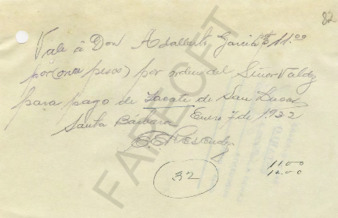 82
Vale á Don Adalberto García $ 11.00
por (once pesos) por orden del Señor Valdez
para pago de Zacate de San Lucas
Santa Bárbara Enero 7 de 1922
32
11.00